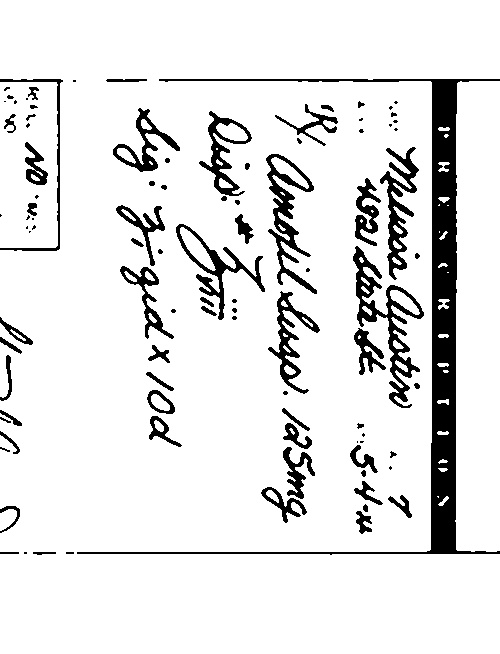 PRESCRIPTION
Melissa Austin 7
4821 State St. 5-4-xx
Rx.
Amoxil Susp. 125mg
Disp: #
Sig: qid x 10d
NO